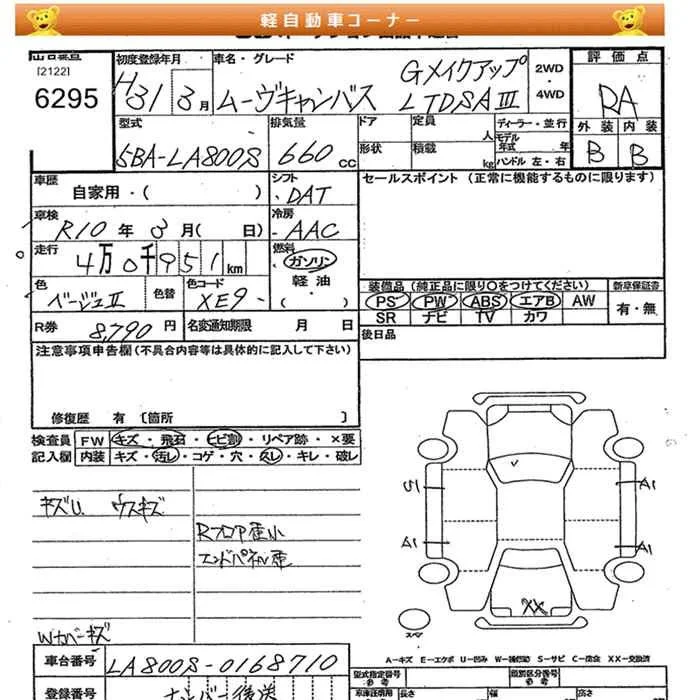 軽自動車コーナー
[2122]
6295
初度登録年月
H31 3月
車名・グレード
ムーヴキャンバス
Gメイクアップ
LTDSAⅢ
2WD
・
4WD
評価点
RA
外装 内装
B B
型式
5BA-LA800S
排気量
660 cc
ドア
形状
定員 人
積載 kg
ディーラー・並行
モデル年式 年
ハンドル 左・右
車歴
自家用・( )
シフト
・DAT
セールスポイント (正常に機能するものに限ります)
車検
R10年 3月( 日)
冷房
・AAC
走行
4万0千951 km
燃料
ガソリン
・
軽油
・
( )
色
ベージュⅡ
色替
色コード
XE9・
装備品 (純正品に限り○をつけてください)
新車保証書
PS PW ABS エアB AW
SR ナビ TV カワ
有・無
R券 8,790 円
名変通知期限 月 日
後日品
注意事項申告欄 (不具合内容等は具体的に記入して下さい)
修復歴 有 〔箇所 〕
検査員 FW キズ・飛石・ヒビ割・リペア跡・×要
記入欄 内装 キズ・汚レ・コゲ・穴・スレ・キレ・破レ
キズU ウスキズ
Rフロア歪小
エンドパネル歪
Wカバーキズ
S1 A1
A1 A1
XX
スペア
車台番号 LA800S-0168710
A-キズ E-エクボ U-凹み W-補修跡 S-サビ C-腐食 XX-交換済
登録番号 ナンバー後送
型式指定番号
参考
類別区分番号
参考
長さ
幅
高さ